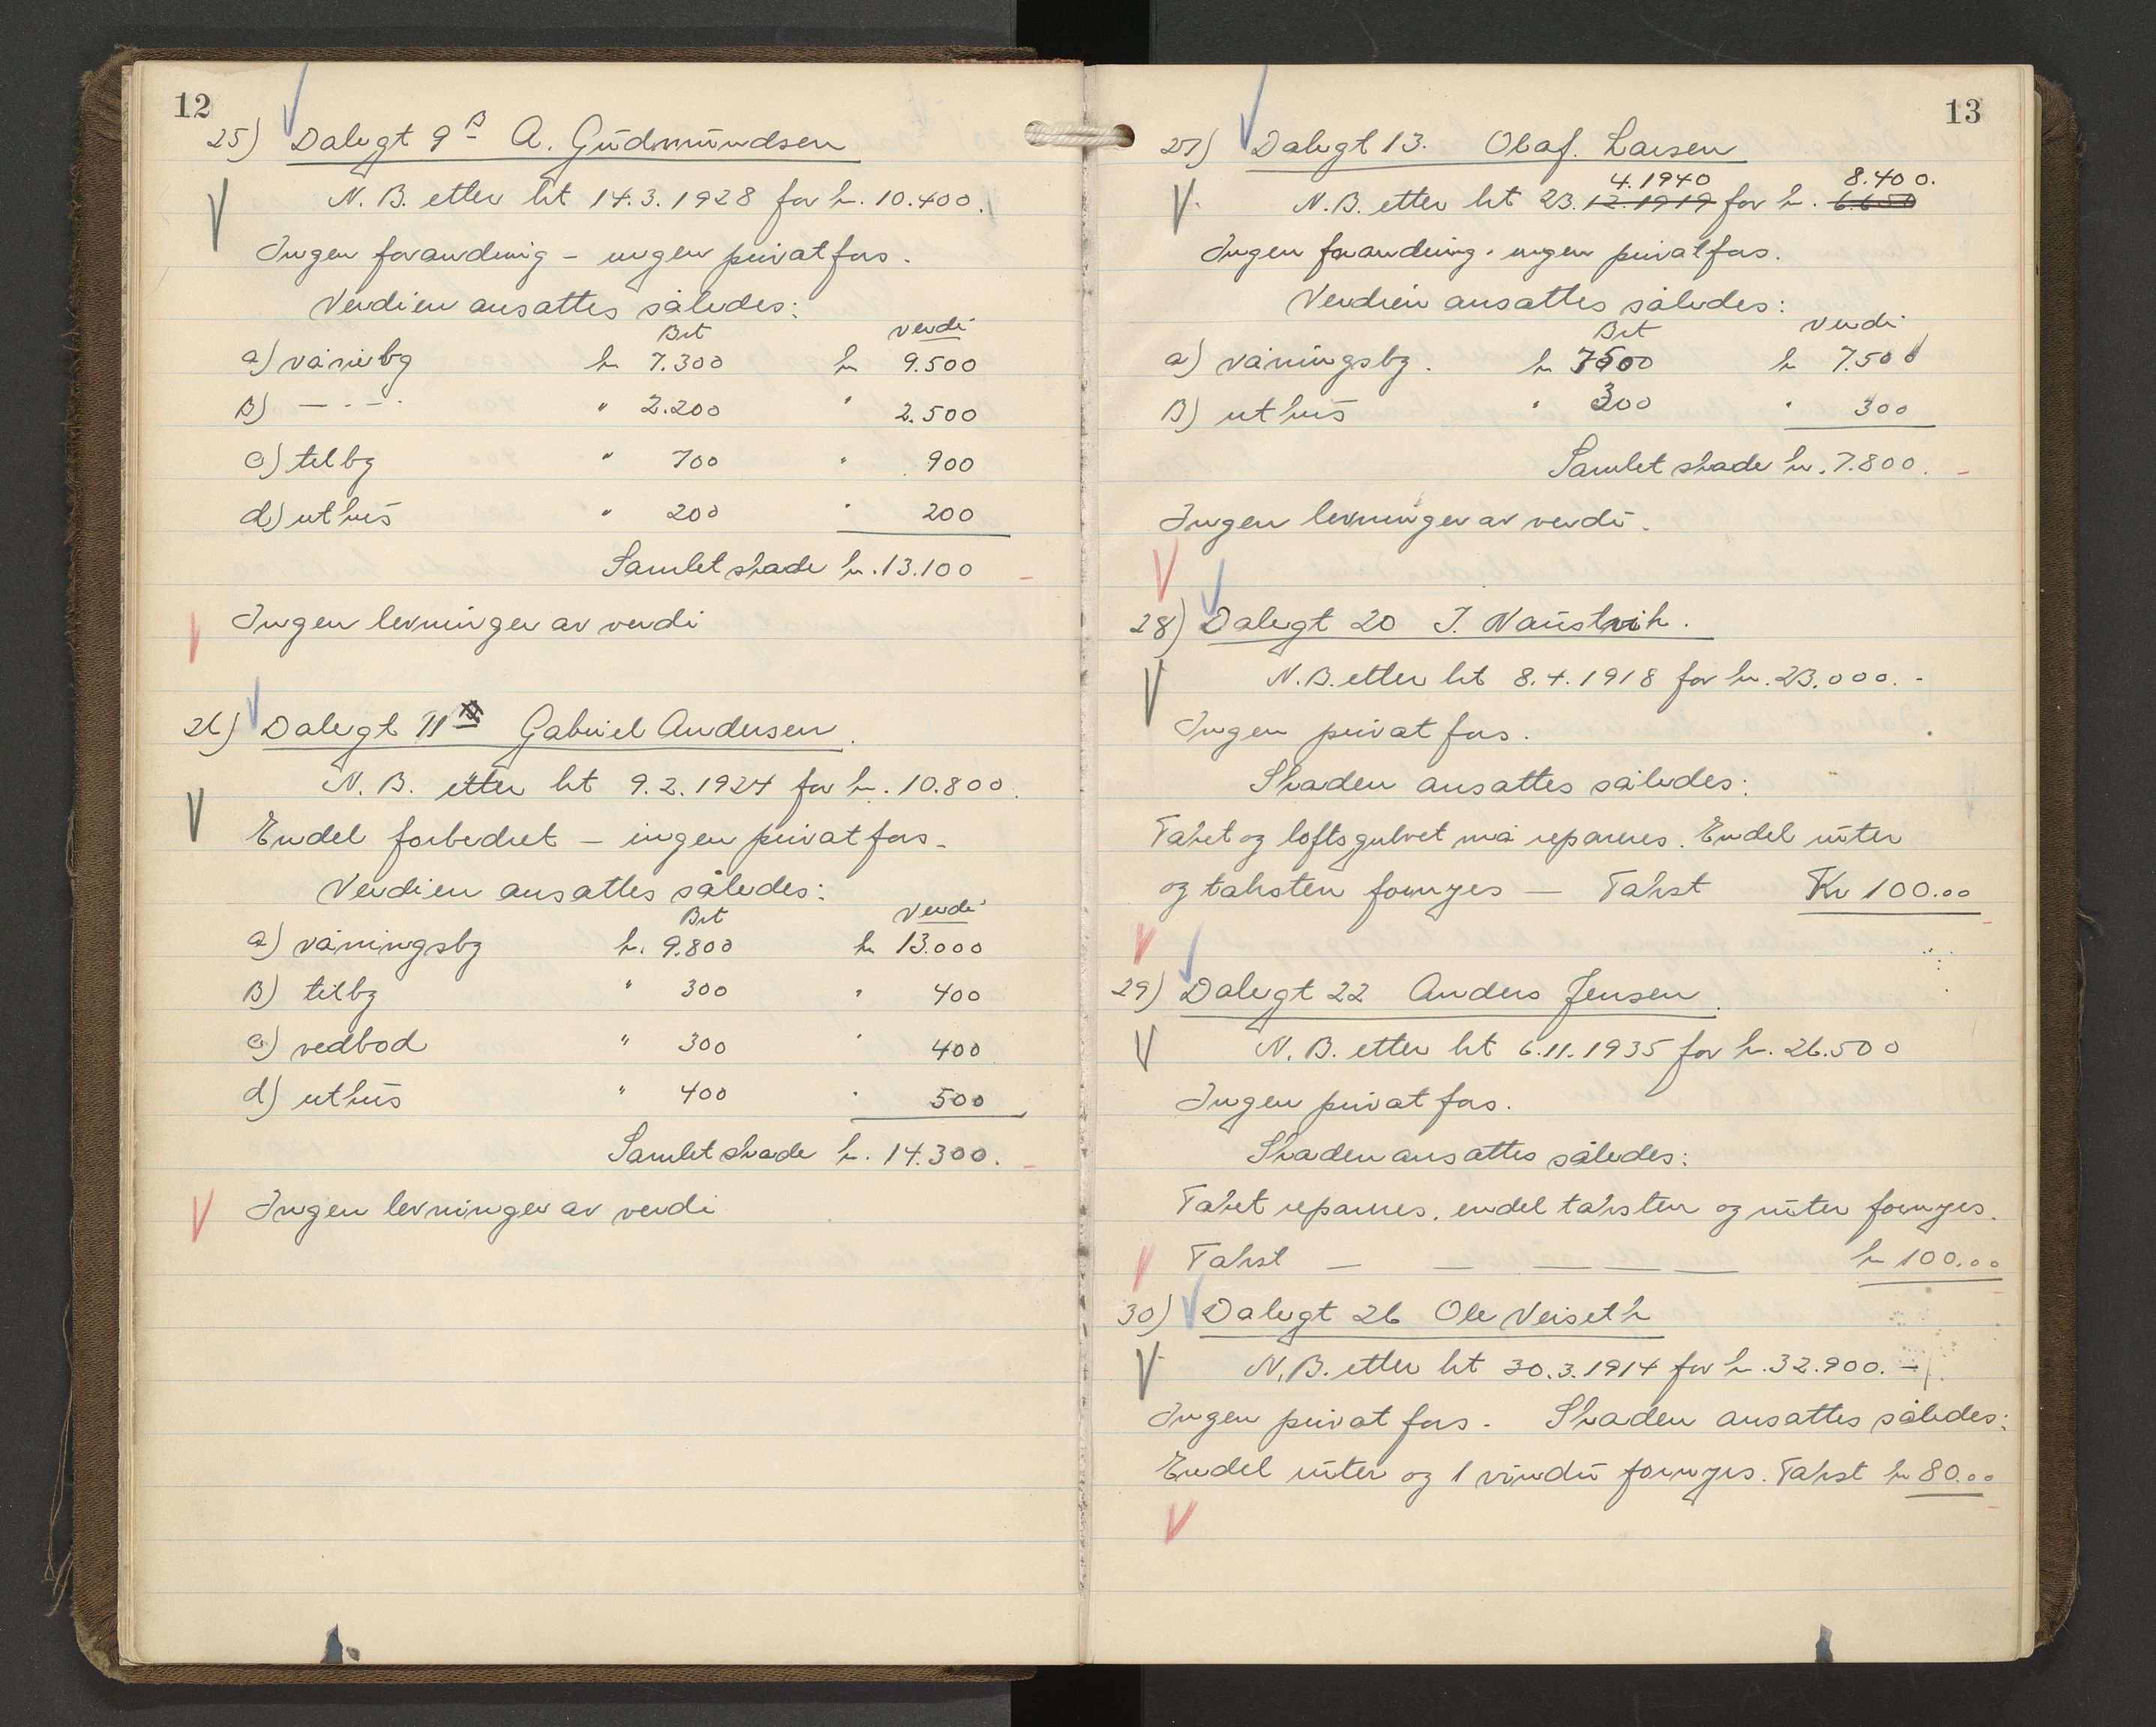 12
25) Dalegt 9B A. Gudmundsen
N.B. etter bt 14.3.1928 for kr. 10.400.
Ingen forandring – ingen privatfors.
Verdien ansattes således:
Bet verdi
a) vånibg kr 7.300 kr 9.500
B) – · – · " 2.200 " 2.500
c) tilbg " 700 " 900
d) uthus " 200 " 200
Samlet skade kr. 13.100
Ingen levninger av verdi
26) Dalegt 11 Gabriel Andersen.
N.B. etter bt 9.2.1924 for kr. 10.800.
Endel forbedret – ingen privatfors.
Verdien ansattes således:
Bet Verdi
a) våningsbg kr. 9.800 kr 13.000
B) tilbg " 300 " 400
c) vedbod " 300 " 400
d) uthus " 400 " 500
Samlet skade kr. 14.300.
Ingen levninger av verdi
13
27) Dalegt 13. Olaf. Larsen
4.1940 8.400.
N.B. etter bt 23.12.1919 for kr. 6.650
Ingen forandring. ingen privatfors.
Verdien ansattes således:
Bet verdi
a) våningsbg. kr 7500 kr 7.500
B) uthus " 300 " 300
Samlet skade kr. 7.800.
Ingen levninger av verdi.
28) Dalegt 20 J. Naustvik.
N.B. etter bt 8.4.1918 for kr. 23.000.-
Ingen privat fors.
Skaden ansattes således:
Taket og loftsgulvet må repareres. Endel ruter
og taksten fornyes — Takst Kr 100.00
29) Dalegt 22 Anders Jensen.
N.B. etter bt 6.11.1935 for kr. 26.500
Ingen privat fors.
Skaden ansattes således:
Taket repareres, endel taksten og ruter fornyes.
Takst — — — — — kr 100.00
30) Dalegt 26 Ole Veiseth
N.B. etter bt 30.3.1914 for kr. 32.900.-
Ingen privat fors. Skaden ansattes således:
Endel ruter og 1 vindu fornyes. Takst kr 80.00